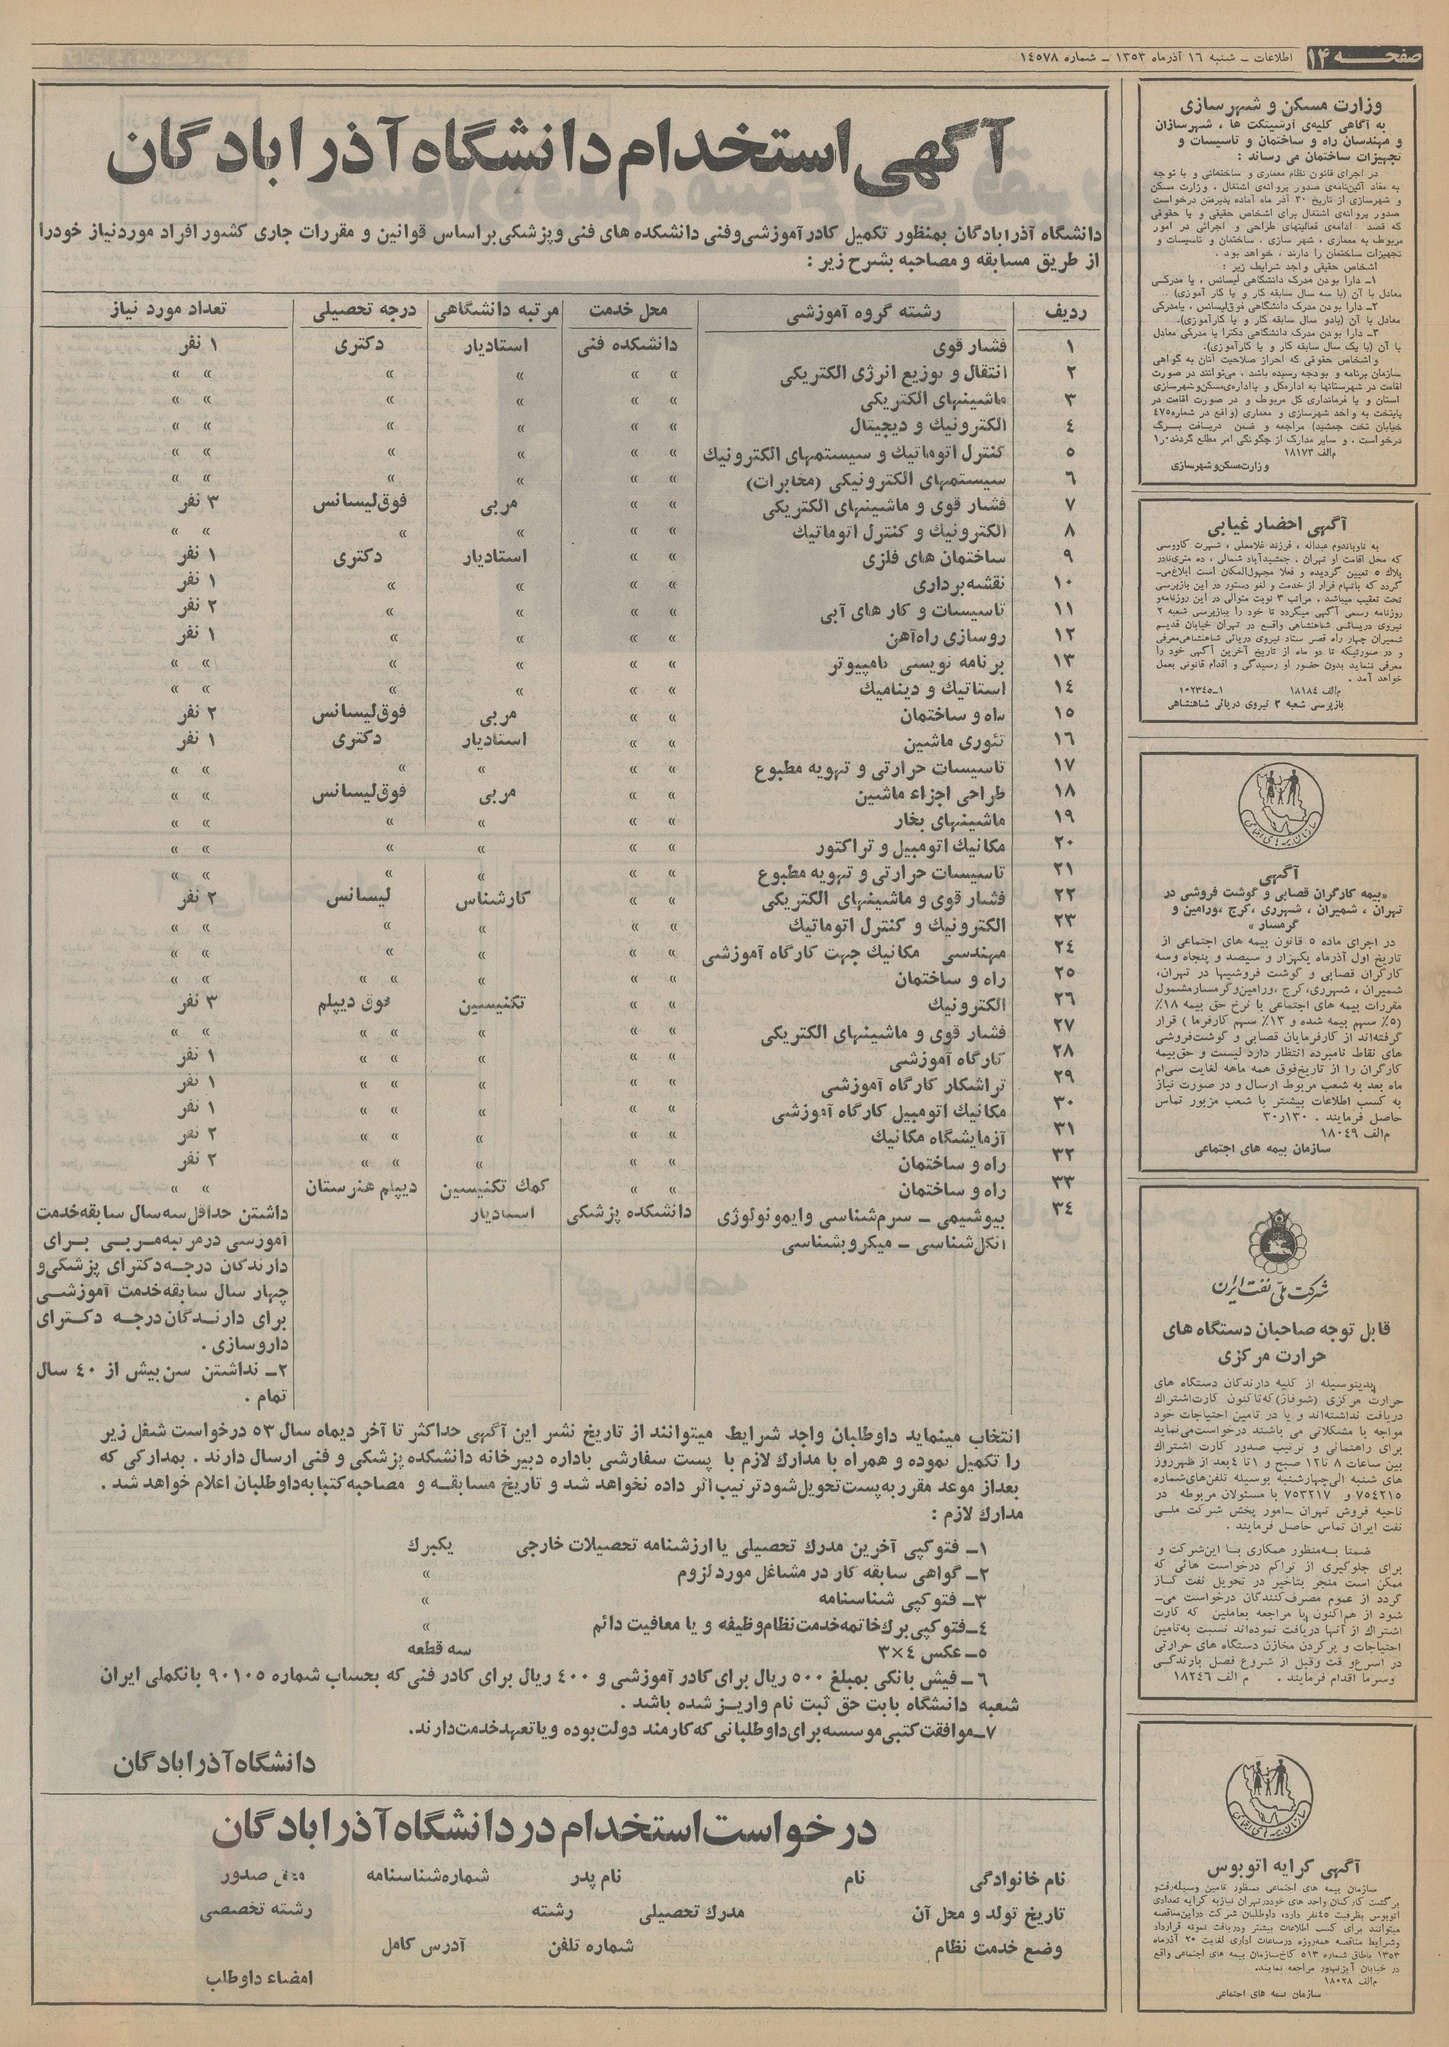 صفحه ۱۴
اطلاعات ـ شنبه ۱۶ آذرماه ۱۳۵۳ ـ شماره ۱۴۵۷۸
وزارت مسکن و شهرسازی
به آگاهی کلیه‌ی آرشیتکت ها ، شهرسازان
و مهندسان راه و ساختمان و تاسیسات و
تجهیزات ساختمان می رساند :
در اجرای قانون نظام معماری و ساختمانی و با توجه
به مفاد آئین‌نامه‌ی صدور پروانه‌ی اشتغال ، وزارت مسکن
و شهرسازی از تاریخ ۳۰ آذر ماه آماده پذیرفتن درخواست
صدور پروانه‌ی اشتغال برای اشخاص حقیقی و یا حقوقی
که قصد ادامه‌ی فعالیتهای طراحی و اجرائی در امور
مربوط به معماری ، شهر سازی ، ساختمان و تاسیسات و
تجهیزات ساختمان را دارند ، خواهد بود .
اشخاص حقیقی واجد شرایط زیر :
۱ـ دارا بودن مدرک دانشگاهی لیسانس ، یا مدرکی
معادل با آن (با سه سال سابقه کار و یا کار آموزی)
۲ـ دارا بودن مدرک دانشگاهی فوق‌لیسانس ، یامدرکی
معادل با آن (بادو سال سابقه کار و یا کارآموزی).
۳ـ دارا بودن مدرک دانشگاهی دکترا یا مدرکی معادل
با آن (با یک سال سابقه کار و یا کارآموزی).
و اشخاص حقوقی که احراز صلاحیت آنان به گواهی
سازمان برنامه و بودجه رسیده باشد ، می‌توانند در صورت
اقامت در شهرستانها به اداره‌کل و یااداره‌ی‌مسکن‌وشهرسازی
استان و یا فرمانداری کل مربوط و در صورت اقامت در
پایتخت به واحد شهرسازی و معماری (واقع در شماره ۴۷۵
خیابان تخت جمشید) مراجعه و ضمن دریافت برگ
درخواست ، و سایر مدارک از چگونگی امر مطلع گردند
م‌الف ۱۸۱۷۳
وزارت‌مسکن‌و‌شهرسازی
آگهی احضار غیابی
به ناوباندوم عبداله ، فرزند غلامعلی ، شهرت کاووسی
که محل اقامت او تهران ، جمشیدآباد شمالی ، ده متری‌نادر
پلاک ۵ تعیین گردیده و فعلا مجهول‌المکان است ابلاغ‌می‌ـ
گردد که باتهام فرار از خدمت و لغو دستور در این بازپرسی
تحت تعقیب میباشد . مراتب ۳ نوبت متوالی در این روزنامه‌و
روزنامه رسمی آگهی میگردد تا خود را ببازپرسی شعبه ۲
نیروی دریائی شاهنشاهی واقع در تهران خیابان قدیم
شمیران چهار راه قصر ستاد نیروی دریائی شاهنشاهی‌معرفی
و در صورتیکه تا دو ماه از تاریخ آخرین آگهی خود را
معرفی ننماید بدون حضور او رسیدگی و اقدام قانونی بعمل
خواهد آمد .
م‌الف ۱۸۱۸۴ ۱ـ۱۰۲۳۴۵
بازپرسی شعبه ۲ نیروی دریائی شاهنشاهی
آگهی
«بیمه کارگران قصابی و گوشت فروشی در
تهران ، شمیران ، شهرری ،کرج ،ورامین و
گرمسار »
در اجرای ماده ۵ قانون بیمه های اجتماعی از
تاریخ اول آذرماه یکهزار و سیصد و پنجاه وسه
کارگران قصابی و گوشت فروشیها در تهران،
شمیران ، شهرری،کرج ،ورامین‌وگرمسارمشمول
مقررات بیمه های اجتماعی با نرخ حق بیمه ۱۸٪
(۵٪ سهم بیمه شده و ۱۳٪ سهم کارفرما ) قرار
گرفته‌اند از کارفرمایان قصابی و گوشت‌فروشی
های نقاط نامبرده انتظار دارد لیست و حق‌بیمه
کارگران را از تاریخ‌فوق همه ماهه لغایت سی‌ام
ماه بعد به شعب مربوط ارسال و در صورت نیاز
به کسب اطلاعات بیشتر با شعب مزبور تماس
حاصل فرمایند . ۳۰ر۱۳۰
م‌الف ۱۸۰۴۹
سازمان بیمه های اجتماعی
شرکت ملی نفت ایران
قابل توجه صاحبان دستگاه های
حرارت مرکزی
بدینوسیله از کلیه دارندگان دستگاه های
حرارت مرکزی (شوفاژ)که‌تاکنون کارت‌اشتراک
دریافت نداشته‌اند و یا در تامین احتیاجات خود
مواجه با مشکلاتی می باشند درخواست‌می‌نماید
برای راهنمائی و ترتیب صدور کارت اشتراک
بین ساعات ۸ تا۱۲ صبح و ۱تا ۴بعد از ظهرروز
های شنبه الی‌چهارشنبه بوسیله تلفن‌های‌شماره
۷۵۴۲۱۵ و ۷۵۳۲۱۷ با مسئولان مربوطه در
ناحیه فروش تهران ـامور پخش شرکت ملی
نفت ایران تماس حاصل فرمایند .
ضمنا به‌منظور همکاری با این‌شرکت و
برای جلوگیری از تراکم درخواست هائی که
ممکن است منجر بتاخیر در تحویل نفت گاز
گردد از عموم مصرف‌کنندگان درخواست می‌ـ
شود از هم‌اکنون با مراجعه بعاملین که کارت
اشتراک از آنها دریافت نموده‌اند نسبت به‌تامین
احتیاجات و پرکردن مخازن دستگاه های حرارتی
در اسرع‌و قت وقبل از شروع فصل بارندگی
وسرما اقدام فرمایند . م الف ۱۸۲۴۶
آگهی کرایه اتوبوس
سازمان بیمه های اجتماعی بمنظور تامین وسیله‌رفت‌و
برگشت کارکنان واحد های خوددرتهران نیازبه کرایه تعدادی
اتوبوس بظرفیت ۴۵نفر دارد، داوطلبان شرکت دراین‌مناقصه
میتوانند برای کسب اطلاعات بیشتر ودریافت نمونه قرارداد
وشرایط مناقصه همه‌روزه درساعات اداری لغایت ۲۰ آذرماه
۱۳۵۳ باطاق شماره ۵۱۳ کاخ‌سازمان بیمه های اجتماعی واقع
در خیابان آیزنهاور مراجعه نمایند.
م‌الف ۱۸۰۲۸
سازمان بیمه های اجتماعی
آگهی استخدام دانشگاه آذرابادگان
دانشگاه آذرابادگان بمنظور تکمیل کادرآموزشی‌وفنی دانشکده های فنی وپزشکی‌براساس قوانین و مقررات جاری کشور افراد موردنیاز خودرا
از طریق مسابقه و مصاحبه بشرح زیر :
ردیف رشته گروه آموزشی محل خدمت مرتبه دانشگاهی درجه تحصیلی تعداد مورد نیاز
۱ فشار قوی دانشکده فنی استادیار دکتری ۱ نفر
۲ انتقال و توزیع انرژی الکتریکی » » » » » »
۳ ماشینهای الکتریکی » » » » » »
۴ الکترونیک و دیجیتال » » » » » »
۵ کنترل اتوماتیک و سیستمهای الکترونیک » » » » » »
۶ سیستمهای الکترونیکی (مخابرات) » » » » » »
۷ فشار قوی و ماشینهای الکتریکی » » مربی فوق‌لیسانس ۳ نفر
۸ الکترونیک و کنترل اتوماتیک » » » » » »
۹ ساختمان های فلزی » » استادیار دکتری ۱ نفر
۱۰ نقشه‌برداری » » » » ۱ نفر
۱۱ تاسیسات و کار های آبی » » » » ۲ نفر
۱۲ روسازی راه‌آهن » » » » ۱ نفر
۱۳ برنامه نویسی کامپیوتر » » » » » »
۱۴ استاتیک و دینامیک » » » » » »
۱۵ راه و ساختمان » » مربی فوق‌لیسانس ۲ نفر
۱۶ تئوری ماشین » » استادیار دکتری ۱ نفر
۱۷ تاسیسات حرارتی و تهویه مطبوع » » » » » »
۱۸ طراحی اجزاء ماشین » » مربی فوق‌لیسانس » »
۱۹ ماشینهای بخار » » » » » »
۲۰ مکانیک اتومبیل و تراکتور » » » » » »
۲۱ تاسیسات حرارتی و تهویه مطبوع » » » » » »
۲۲ فشار قوی و ماشینهای الکتریکی » » کارشناس لیسانس ۲ نفر
۲۳ الکترونیک و کنترل اتوماتیک » » » » » »
۲۴ مهندسی مکانیک جهت کارگاه آموزشی » » » » » »
۲۵ راه و ساختمان » » » » » » »
۲۶ الکترونیک » » تکنیسین فوق دیپلم ۳ نفر
۲۷ فشار قوی و ماشینهای الکتریکی » » » » » » »
۲۸ کارگاه آموزشی » » » » » ۱ نفر
۲۹ تراشکار کارگاه آموزشی » » » » » ۱ نفر
۳۰ مکانیک اتومبیل کارگاه آموزشی » » » » » ۱ نفر
۳۱ آزمایشگاه مکانیک » » » » » ۲ نفر
۳۲ راه و ساختمان » » » » » ۲ نفر
۳۳ راه و ساختمان » » کمک تکنیسین دیپلم هنرستان » »
۳۴ بیوشیمی ـ سرم‌شناسی وایمونولوژی دانشکده پزشکی استادیار داشتن حداقل‌سه سال سابقه‌خدمت
انگل‌شناسی ـ میکروبشناسی آموزشی درمرتبه‌مربی برای
دارندگان درجه‌دکترای پزشکی‌و
چهار سال سابقه‌خدمت آموزشی
برای دارندگان‌درجه دکترای
داروسازی .
۲ـ نداشتن سن‌بیش از ۴۰ سال
تمام .
انتخاب مینماید داوطلبان واجد شرایط میتوانند از تاریخ نشر این آگهی حداکثر تا آخر دیماه سال ۵۳ درخواست شغل زیر
را تکمیل نموده و همراه با مدارک لازم با پست سفارشی باداره دبیرخانه دانشکده پزشکی و فنی ارسال دارند . بمدارکی که
بعداز موعد مقرربه‌پست‌تحویل‌شودترتیب‌اثر داده نخواهد شد و تاریخ مسابقه و مصاحبه کتبابه‌داوطلبان اعلام خواهد شد .
مدارک لازم :
۱ـ فتوکپی آخرین مدرک تحصیلی یاارزشنامه تحصیلات خارجی یکبرگ
۲ـ گواهی سابقه کار در مشاغل موردلزوم »
۳ـ فتوکپی شناسنامه »
۴ـفتوکپی‌برگ‌خاتمه‌خدمت‌نظام‌وظیفه و یا معافیت دائم »
۵ـ عکس ۴×۳ سه قطعه
۶ـ فیش بانکی بمبلغ ۵۰۰ ریال برای‌کادر آموزشی و ۴۰۰ ریال برای کادر فنی که بحساب شماره ۹۰۱۰۵ بانکملی ایران
شعبه دانشگاه بابت حق ثبت نام واریز شده باشد .
۷ـموافقت‌کتبی‌موسسه‌برای‌داوطلبانی‌که‌کارمند دولت‌بوده ویاتعهدخدمت‌دارند.
دانشگاه‌آذرابادگان
درخواست‌استخدام دردانشگاه آذرابادگان
نام خانوادگی نام نام پدر شماره‌شناسنامه محل صدور
تاریخ تولد و محل آن مدرک تحصیلی رشته رشته تخصصی
وضع خدمت نظام شماره تلفن آدرس کامل
امضاء داوطلب